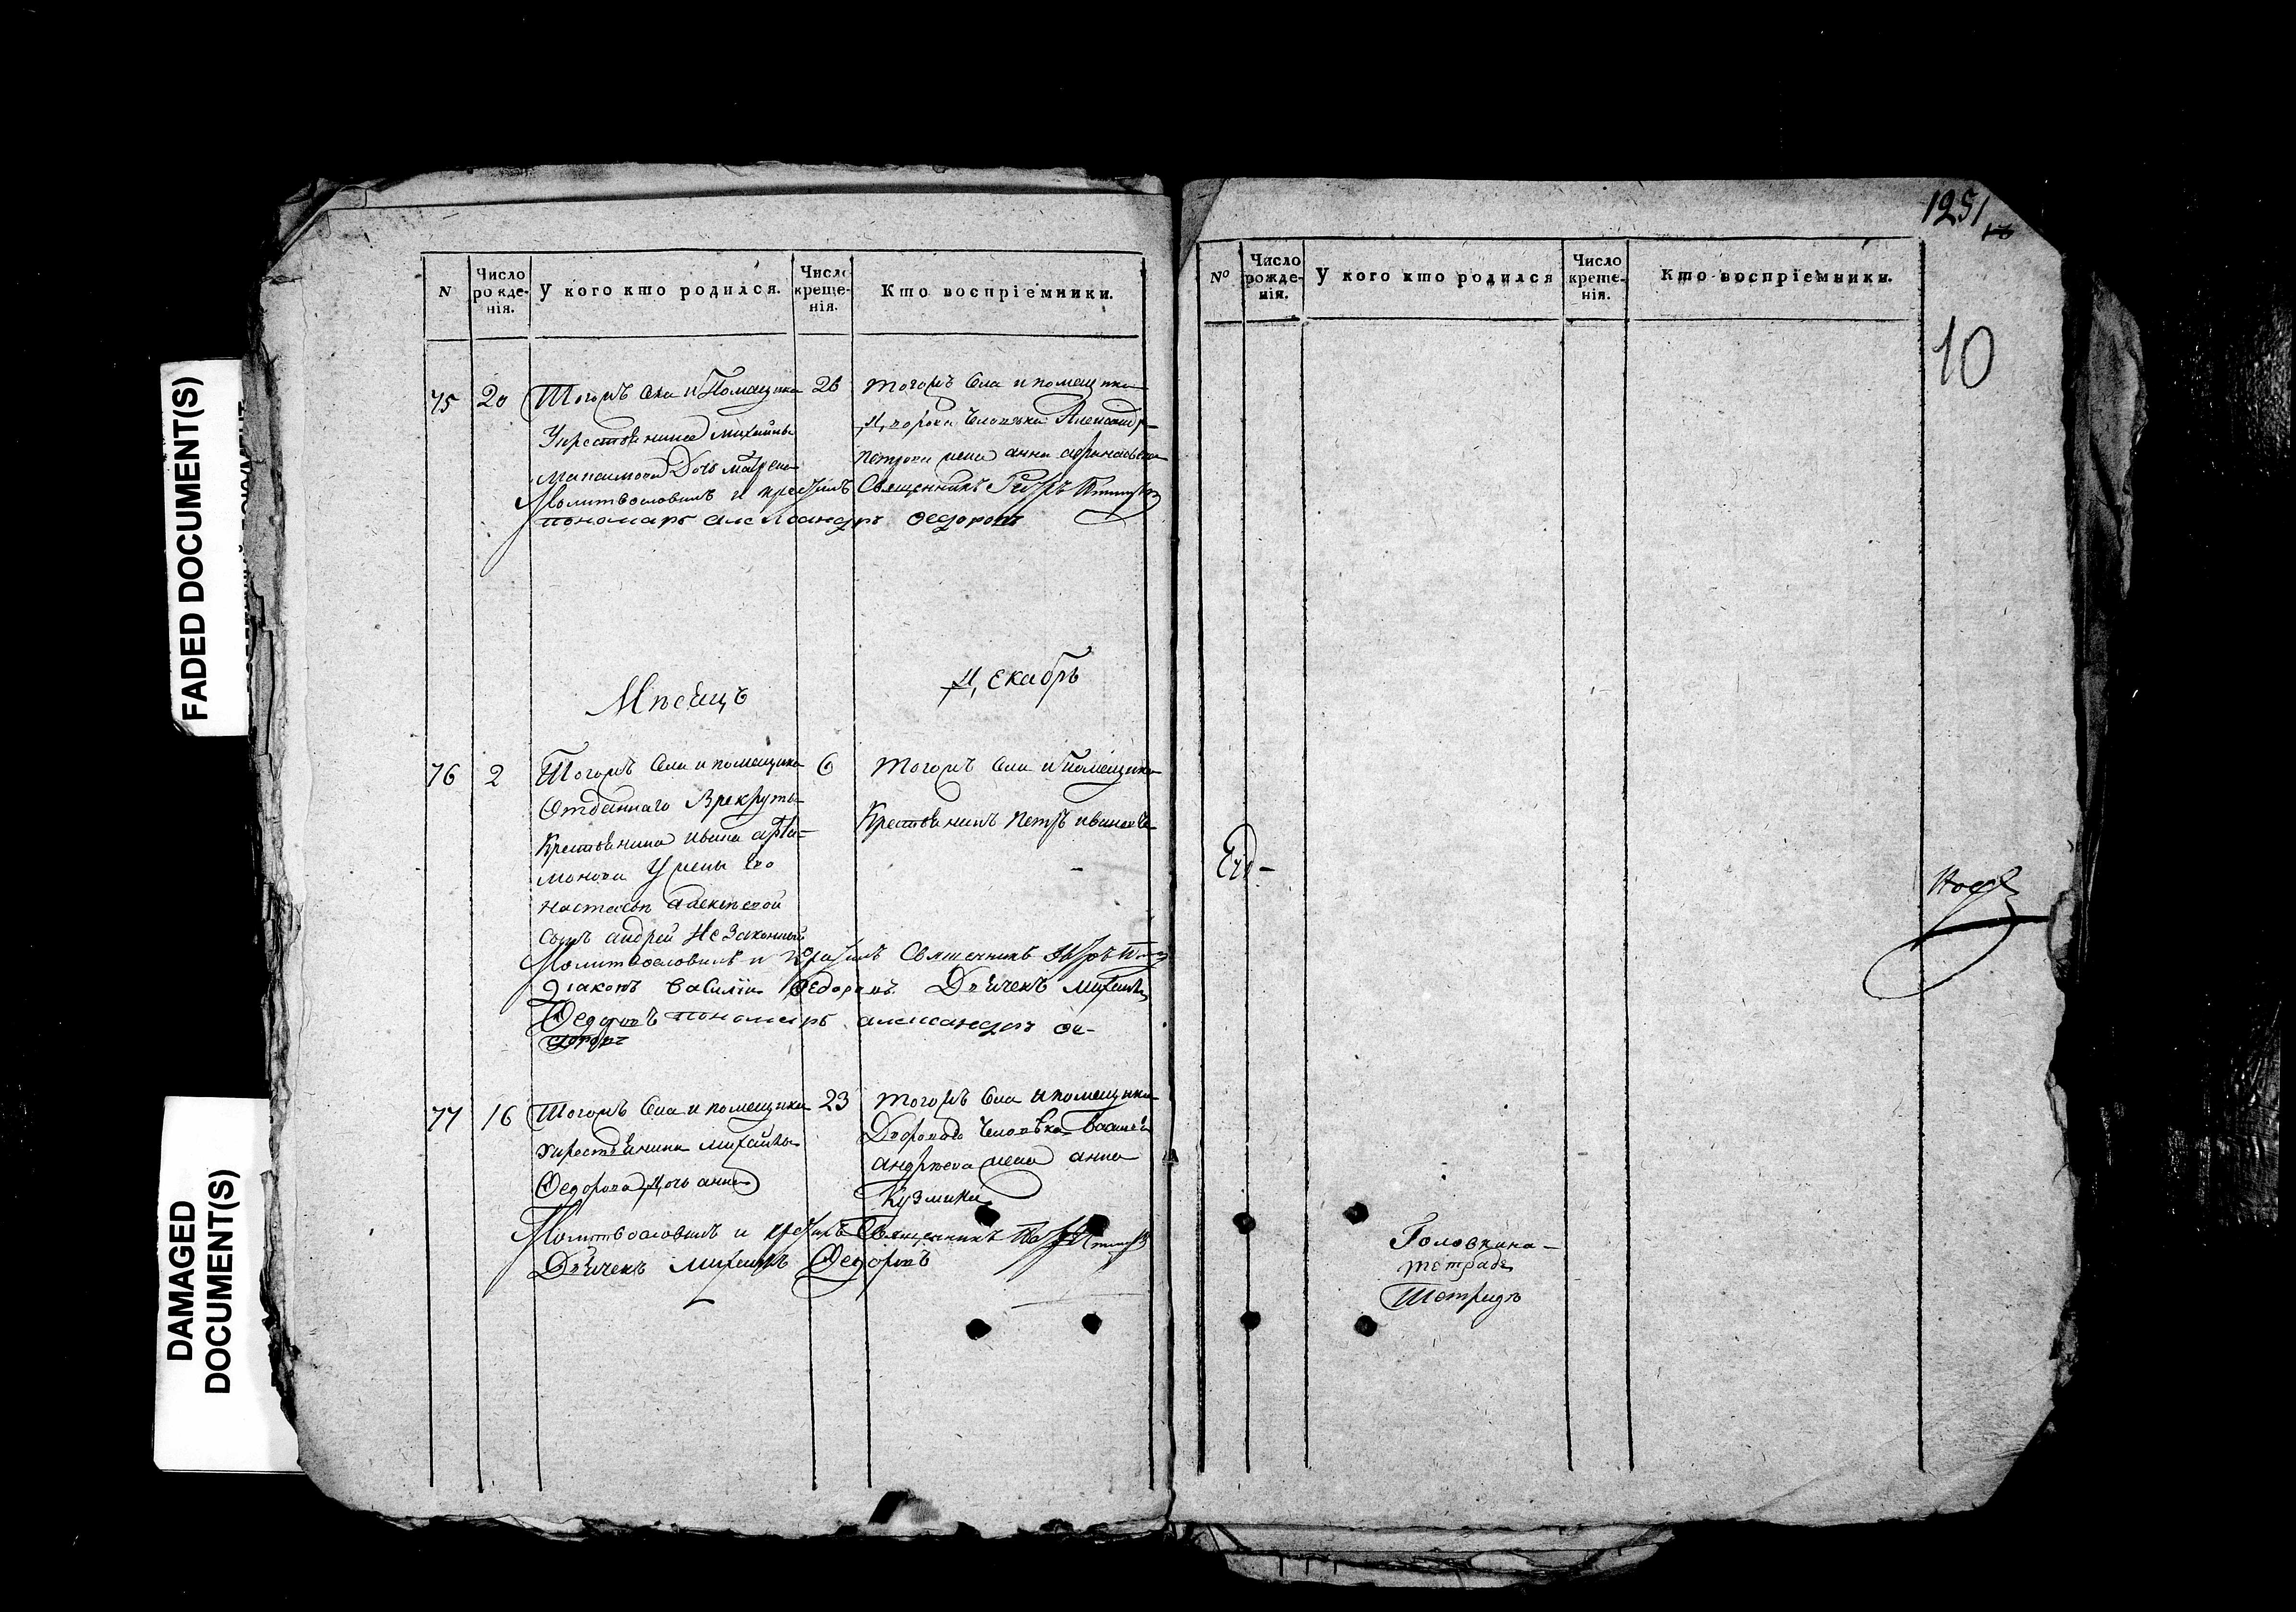 FADED DOCUMENT(S)
DAMAGED
DOCUMENT(S)
N
Число рожденія.
У кого кто родился.
Число крещенія.
Кто воспріемники.
75 20 Тогожъ села и Помещика 26 тогожъ села и помещика
Укрестьянина михайлы дворова человека Александра
максимова Дочь матрена петрова жена анна
Молитвословилъ и крестилъ Священникъ Петръ
пономарь александръ федоровъ
Мѣсецъ декабрь
76 2 Тогожъ села и помещика 6 тогожъ села и помещика
Отданнаго Врекруты Крестьянинъ петръ ивановъ
Крестьянина ивана арта=
монова У жены его
настасьи алексѣевой
сынъ андрей Незаконный
Молитвословилъ и крестилъ Священникъ Петръ
Діаконъ василій Федоровъ Дьячекъ михаилъ
Федоровъ пономарь александръ фе-
доровъ
77 16 Тогожъ села и помещика 23 тогожъ села и помещика
укрестьянина михайлы Дворового человѣка василья
Федорова дочь анна андрѣева жена анна
Кузмина
Молитвословилъ и крестилъ Священникъ Петръ
Дьячекъ михаилъ Федоровъ
1251
N°
Число рожденія.
У кого кто родился
Число крещенія.
Кто воспріемники.
10
Головкина-
тетрадь
Тетрадь